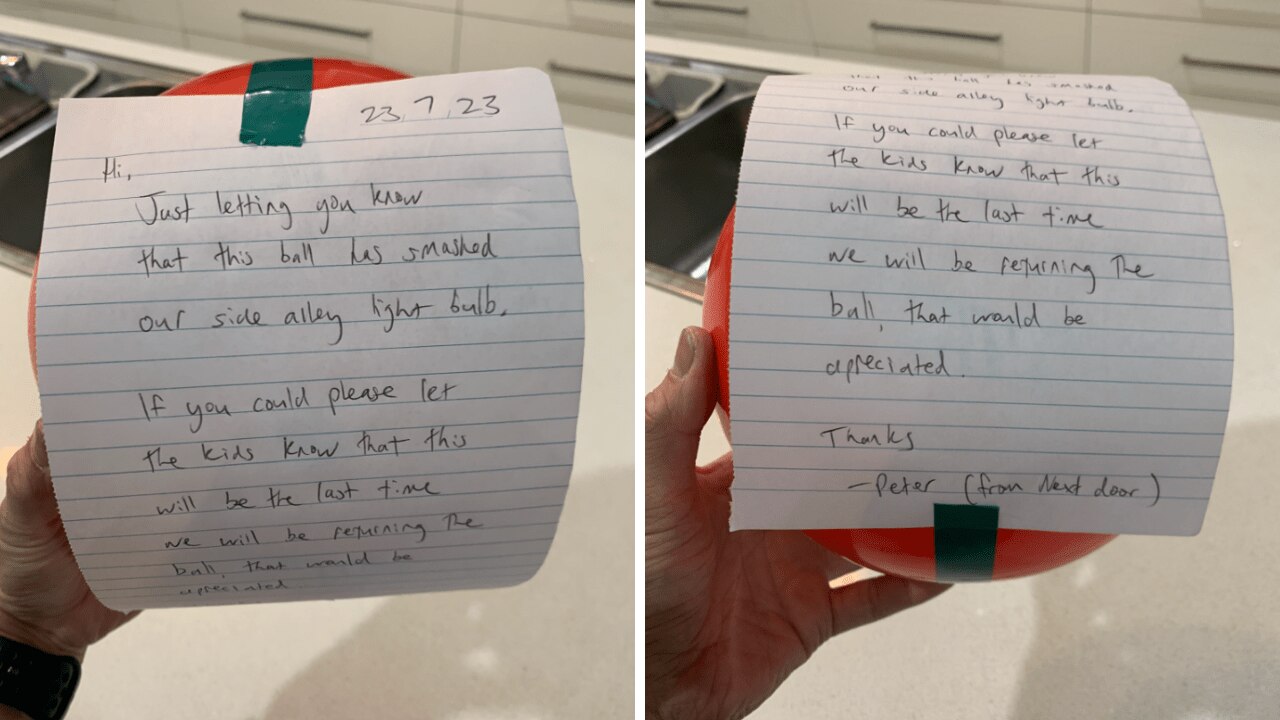 23.7.23
Hi,
Just letting you know
that this ball has smashed
our side alley light bulb.
If you could please let
the kids know that this
will be the last time
we will be returning the
ball, that would be
apreciated.
that this ball has smashed
our side alley light bulb.
If you could please let
the kids know that this
will be the last time
we will be returning The
ball, that would be
apreciated.
Thanks
-Peter (from Next door)